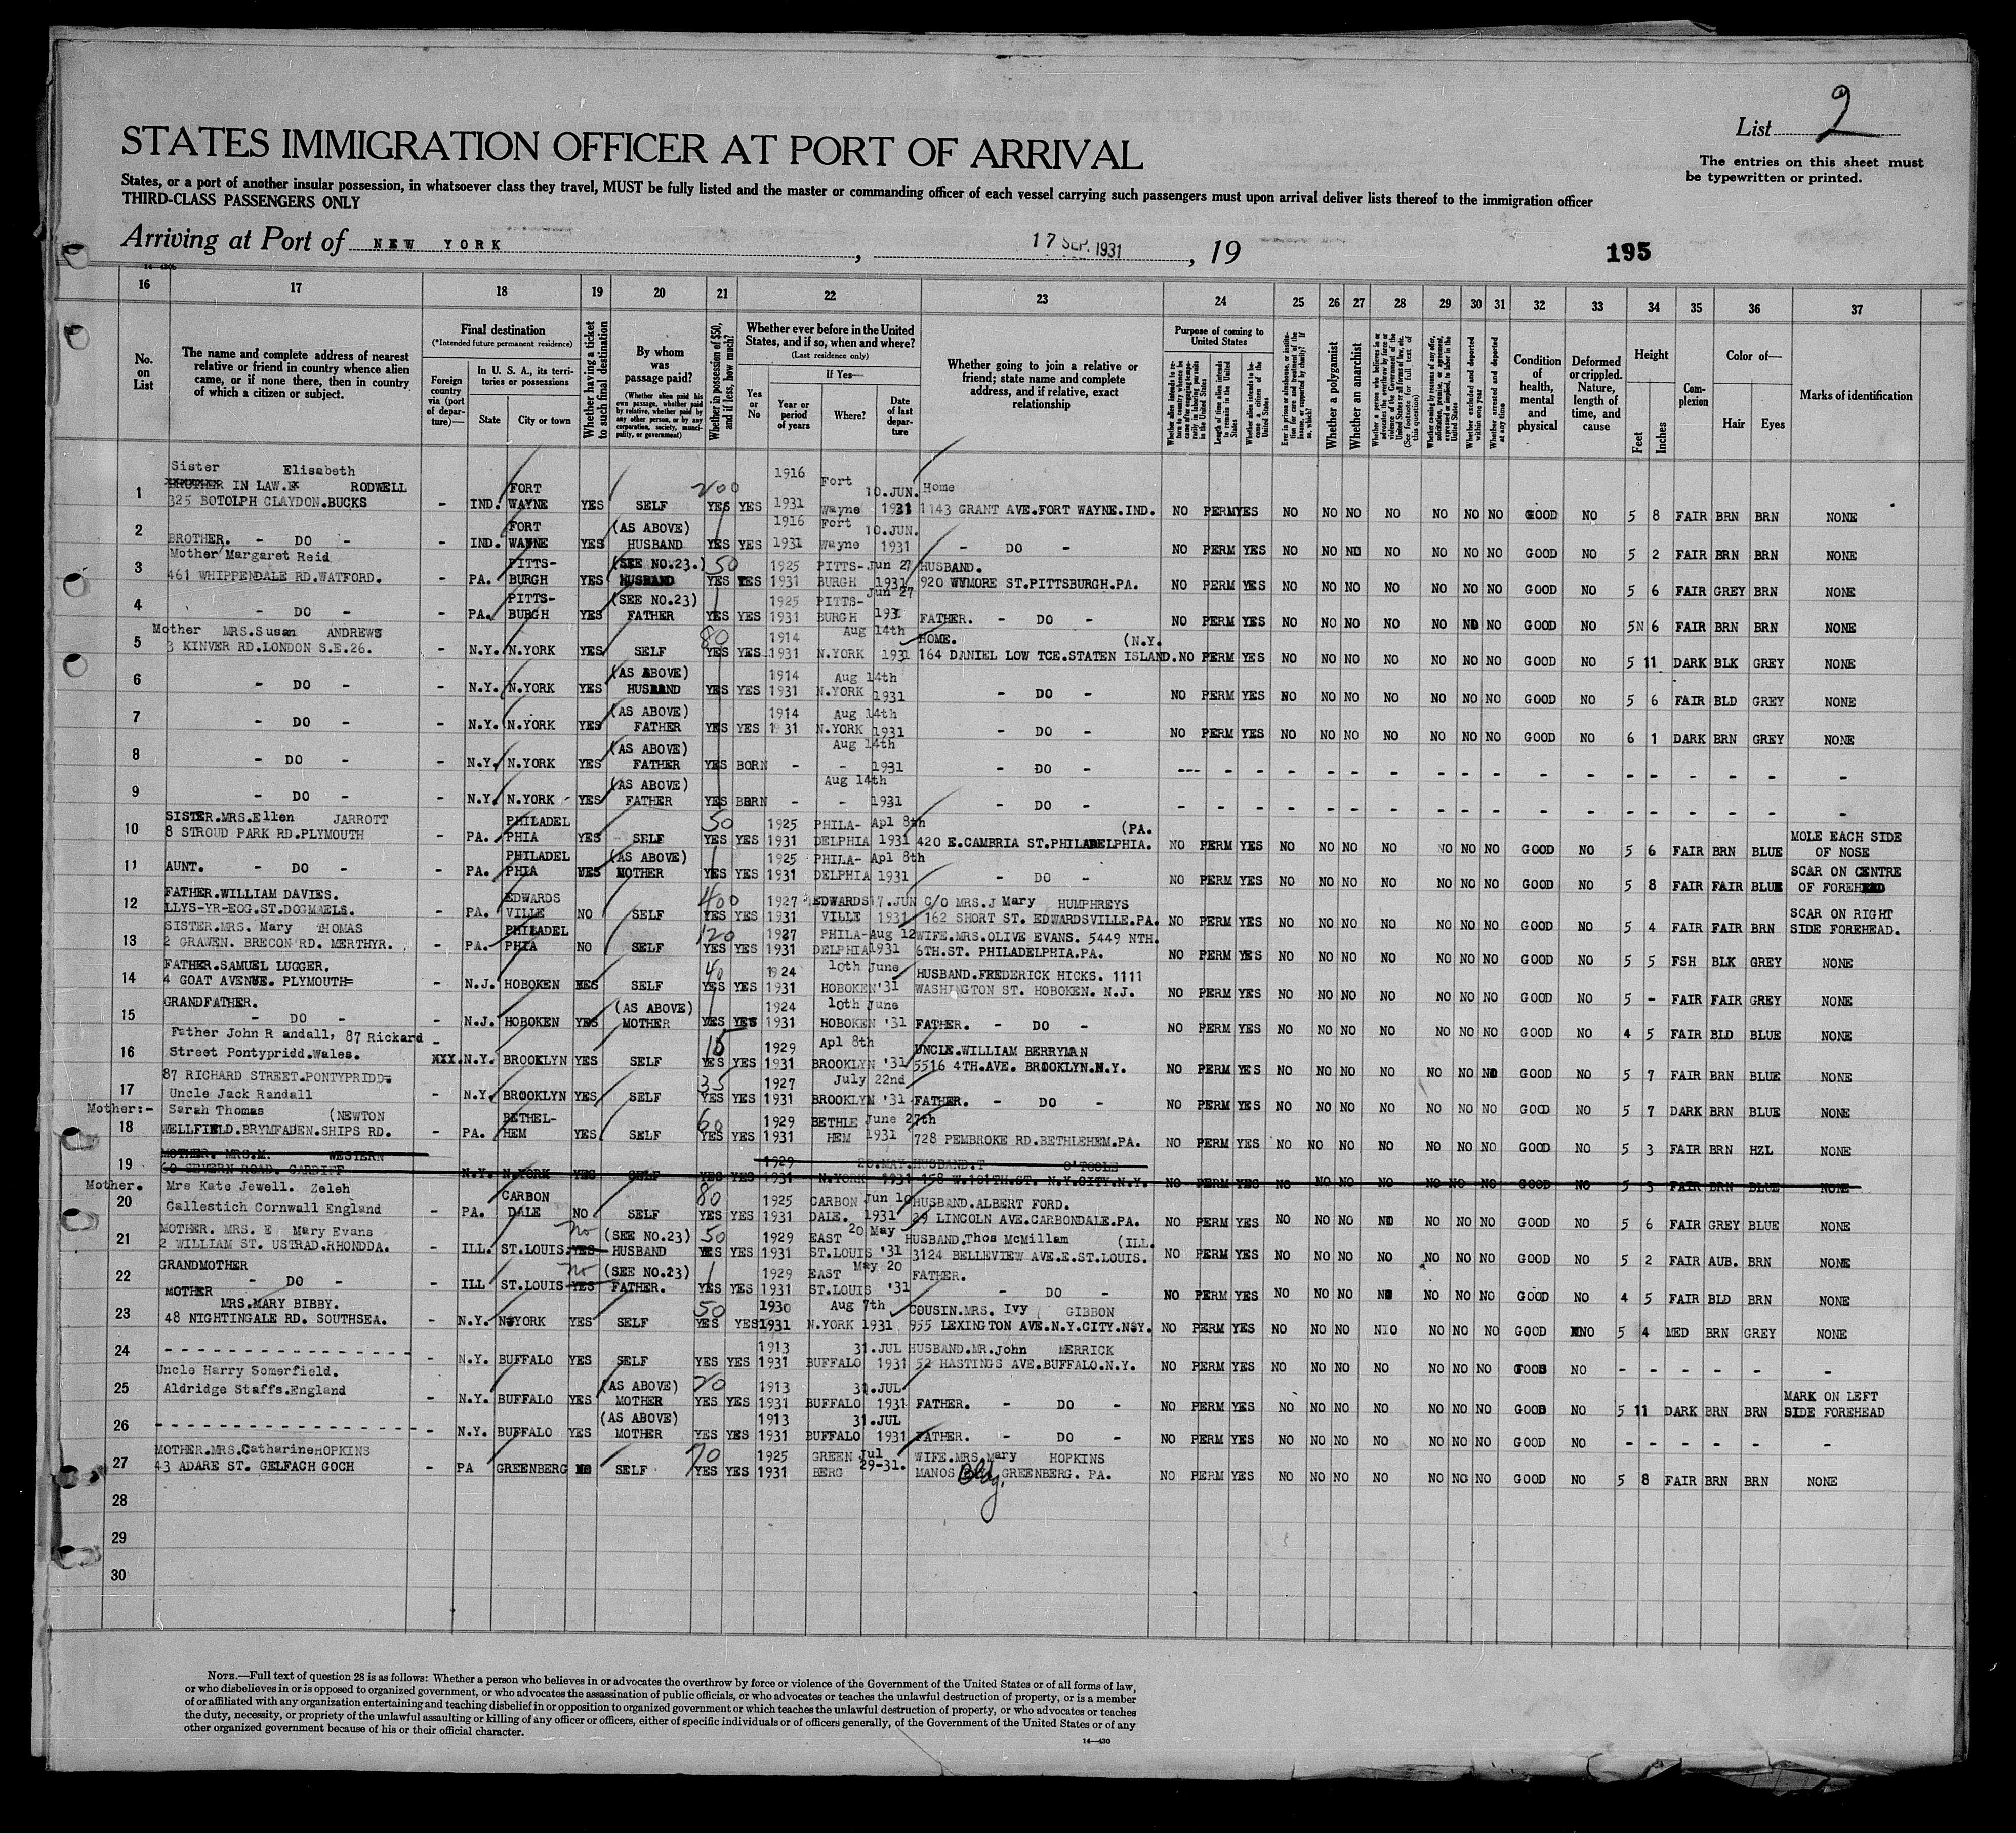 List 2
The entries on this sheet must
be typewritten or printed.
STATES IMMIGRATION OFFICER AT PORT OF ARRIVAL
States, or a port of another insular possession, in whatsoever class they travel, MUST be fully listed and the master or commanding officer of each vessel carrying such passengers must upon arrival deliver lists thereof to the immigration officer
THIRD-CLASS PASSENGERS ONLY
Arriving at Port of NEW YORK, 17 SEP. 1931, 19
195
16 17 18 19 20 21 22 23 24 25 26 27 28 29 30 31 32 33 34 35 36 37
No. on List
The name and complete address of nearest relative or friend in country whence alien came, or if none there, then in country of which a citizen or subject.
Final destination
(*Intended future permanent residence)
Foreign country via (port of departure)—
In U. S. A., its territories or possessions
State
City or town
Whether having a ticket to such final destination
By whom was passage paid?
(Whether alien paid his own passage, whether paid by relative, whether paid by any other person, or by any corporation, society, municipality, or government)
Whether in possession of $50, and if less, how much?
Whether ever before in the United States, and if so, when and where?
(Last residence only)
Yes or No
If Yes—
Year or period of years
Where?
Date of last departure
Whether going to join a relative or friend; state name and complete address, and if relative, exact relationship
Purpose of coming to United States
Length of time alien intends to remain in the United States
Whether alien intends to become a citizen of the United States
Whether a polygamist
Whether an anarchist
Whether excluded and deported within one year
Whether arrested and deported at any time
Condition of health, mental and physical
Deformed or crippled. Nature, length of time, and cause
Height
Feet
Inches
Complexion
Color of—
Hair
Eyes
Marks of identification
Sister Elisabeth
IN LAW. RODWELL 1916 Fort 10.JUN. Home
1 325 BOTOLPH CLAYDON.BUCKS - IND. FORT WAYNE YES SELF 200 YES YES 1931 Wayne 1931 1143 GRANT AVE.FORT WAYNE.IND. NO PERM YES NO NO NO NO NO NO NO GOOD NO 5 8 FAIR BRN BRN NONE
2 BROTHER. - DO - - IND. FORT WAYNE YES (AS ABOVE) HUSBAND YES YES 1916 1931 Fort Wayne 10.JUN. 1931 - DO - NO PERM YES NO NO NO NO NO NO NO GOOD NO 5 2 FAIR BRN BRN NONE
Mother Margaret Reid
3 461 WHIPPENDALE RD.WATFORD. - PA. PITTS-BURGH YES (SEE NO.23.) HUSBAND 50 YES YES 1925 1931 PITTS-BURGH Jun 27 1931 HUSBAND. 920 WYMORE ST.PITTSBURGH.PA. NO PERM YES NO NO NO NO NO NO NO GOOD NO 5 6 FAIR GREY BRN NONE
4 - DO - - PA. PITTS-BURGH YES (SEE NO.23) FATHER YES YES 1925 1931 PITTS-BURGH Jun 27 193 FATHER. - DO - NO PERM YES NO NO NO NO NO NO NO GOOD NO 5N 6 FAIR BRN BRN NONE
Mother MRS.Susan ANDREWS
5 3 KINVER RD.LONDON S.E.26. - N.Y. N.YORK YES SELF 80 YES YES 1914 1931 N.YORK Aug 14th 1931 HOME. (N.Y. 164 DANIEL LOW TCE.STATEN ISLAND. NO PERM YES NO NO NO NO NO NO NO GOOD NO 5 11 DARK BLK GREY NONE
6 - DO - - N.Y. N.YORK YES (AS ABOVE) HUSBAND YES YES 1914 1931 N.YORK Aug 14th 1931 - DO - NO PERM YES NO NO NO NO NO NO NO GOOD NO 5 6 FAIR BLD GREY NONE
7 - DO - - N.Y. N.YORK YES (AS ABOVE) FATHER YES YES 1914 1931 N.YORK Aug 14th 1931 - DO - NO PERM YES NO NO NO NO NO NO NO GOOD NO 6 1 DARK BRN GREY NONE
8 - DO - - N.Y. N.YORK YES (AS ABOVE) FATHER YES BORN - - Aug 14th 1931 - DO - --- - - - - - - - - - - - - - - - - -
9 - DO - - N.Y. N.YORK - YES (AS ABOVE) FATHER YES BORN - - Aug 14th 1931 - DO - - - - - - - - - - - - - - - - - - -
SISTER.MRS.Ellen JARROTT
10 8 STROUD PARK RD.PLYMOUTH - PA. PHILADELPHIA YES SELF 50 YES YES 1925 1931 PHILA-DELPHIA Apl 8th 1931 (PA. 420 E.CAMBRIA ST.PHILADELPHIA. NO PERM YES NO NO NO NO NO NO NO GOOD NO 5 6 FAIR BRN BLUE MOLE EACH SIDE OF NOSE
11 AUNT. - DO - - PA. PHILADELPHIA YES (AS ABOVE) MOTHER YES YES 1925 1931 PHILA-DELPHIA Apl 8th 1931 - DO - NO PERM YES NO NO NO NO NO NO NO GOOD NO 5 8 FAIR FAIR BLUE SCAR ON CENTRE OF FOREHEAD
FATHER.WILLIAM DAVIES.
12 LLYS-YR-EOG.ST.DOGMAELS. - PA. EDWARDSVILLE NO SELF 400 YES YES 1927 1931 EDWARDSVILLE 17.JUN 1931 C/O MRS.J Mary HUMPHREYS 162 SHORT ST. EDWARDSVILLE.PA. NO PERM YES NO NO NO NO NO NO NO GOOD NO 5 4 FAIR FAIR BRN SCAR ON RIGHT SIDE FOREHEAD.
SISTER.MRS. Mary THOMAS
13 2 GRAWEN. BRECON RD. MERTHYR. - PA. PHILADELPHIA NO SELF 120 YES YES 1927 1931 PHILA-DELPHIA Aug 12 1931 WIFE.MRS.OLIVE EVANS. 5449 NTH. 6TH.ST. PHILADELPHIA.PA. NO PERM YES NO NO NO NO NO NO NO GOOD NO 5 5 FSH BLK GREY NONE
FATHER.SAMUEL LUGGER.
14 4 GOAT AVENUE. PLYMOUTH= - N.J. HOBOKEN YES SELF 40 YES YES 1924 1931 HOBOKEN 10th June '31 HUSBAND.FREDERICK HICKS. 1111 WASHINGTON ST. HOBOKEN. N.J. NO PERM YES NO NO NO NO NO NO NO GOOD NO 5 - FAIR FAIR GREY NONE
GRANDFATHER.
15 - DO - - N.J. HOBOKEN YES (AS ABOVE) MOTHER YES YES 1924 1931 HOBOKEN 10th June '31 FATHER. - DO - NO PERM YES NO NO NO NO NO NO NO GOOD NO 4 5 FAIR BLD BLUE NONE
Father John Randall, 87 Rickard
16 Street Pontypridd.Wales. - XXX. N.Y. BROOKLYN YES SELF 15 YES YES 1929 1931 BROOKLYN Apl 8th '31 UNCLE.WILLIAM BERRYMAN 5516 4TH.AVE. BROOKLYN.N.Y. NO PERM YES NO NO NO NO NO NO NO GOOD NO 5 7 FAIR BRN BLUE NONE
87 RICHARD STREET.PONTYPRIDD=
17 Uncle Jack Randall - N.Y. BROOKLYN YES SELF 35 YES YES 1927 1931 BROOKLYN July 22nd '31 FATHER. - DO - NO PERM YES NO NO NO NO NO NO NO GOOD NO 5 7 DARK BRN BLUE NONE
Mother:- Sarah Thomas (NEWTON
18 WELLFIELD.BRYMFADEN.SHIPS RD. - PA. BETHEL-HEM YES SELF 60 YES YES 1929 1931 BETHLEHEM June 27th 1931 728 PEMBROKE RD.BETHLEHEM.PA. NO PERM YES NO NO NO NO NO NO NO GOOD NO 5 3 FAIR BRN HZL NONE
MOTHER. MRS.M. WESTERN
19 60 SEVERN ROAD. CARDIFF N.Y. N.YORK YES SELF YES YES 1929 1931 N.YORK 20.MAY. 1931 HUSBAND.T O'TOOLE 158 W.101TH.ST. N.Y.CITY.N.Y. NO PERM YES NO NO NO NO NO NO NO GOOD NO 5 3 FAIR BRN BLUE NONE
Mother. Mrs Kate Jewell. Zeleh
20 Callestich Cornwall England - PA. CARBON DALE NO SELF 80 YES YES 1925 1931 CARBON DALE. Jun 10 1931 HUSBAND.ALBERT FORD. 29 LINCOLN AVE.CARBONDALE.PA. NO PERM YES NO NO NO NO NO NO NO GOOD NO 5 6 FAIR GREY BLUE NONE
MOTHER. MRS. E Mary Evans
21 2 WILLIAM ST. USTRAD.RHONDDA. - ILL. ST.LOUIS. YES no (SEE NO.23) HUSBAND 50 YES YES 1929 1931 EAST ST.LOUIS 20 May '31 HUSBAND.Thos McMillam (ILL. 3124 BELLEVIEW AVE.E.ST.LOUIS. NO PERM YES NO NO NO NO NO NO NO GOOD NO 5 2 FAIR AUB. BRN NONE
GRANDMOTHER
22 - DO - - ILL ST.LOUIS YES no (SEE NO.23) FATHER. YES YES 1929 1931 EAST ST.LOUIS May 20 '31 FATHER. - DO - NO PERM YES NO NO NO NO NO NO NO GOOD NO 4 5 FAIR BLD BRN NONE
MOTHER
MRS.MARY BIBBY.
23 48 NIGHTINGALE RD. SOUTHSEA. - N.Y. N.YORK YES SELF 50 YES YES 1930 1931 N.YORK Aug 7th 1931 COUSIN.MRS. Ivy GIBBON 955 LEXINGTON AVE.N.Y.CITY.N.Y. NO PERM YES NO NO NO NO NO NO NO GOOD NO 5 4 MED BRN GREY NONE
24 - - - - - - - - - - - - - - - N.Y. BUFFALO YES SELF YES YES 1913 1931 BUFFALO 31.JUL 1931 HUSBAND.MR.John MERRICK 52 HASTINGS AVE.BUFFALO.N.Y. NO PERM YES NO NO NO NO NO NO NO GOOD NO - - - - - -
Uncle Harry Somerfield.
25 Aldridge Staffs.England - N.Y. BUFFALO YES (AS ABOVE) MOTHER 20 YES YES 1913 1931 BUFFALO 31.JUL 1931 FATHER. - DO - NO PERM YES NO NO NO NO NO NO NO GOOD NO 5 11 DARK BRN BRN MARK ON LEFT SIDE FOREHEAD
26 - - - - - - - - - - - - - - - N.Y. BUFFALO YES (AS ABOVE) MOTHER YES YES 1913 1931 BUFFALO 31.JUL 1931 FATHER. - DO - NO PERM YES NO NO NO NO NO NO NO GOOD NO - - - - - -
MOTHER.MRS.Catharine HOPKINS
27 43 ADARE ST. GELFACH GOCH - PA GREENBERG NO SELF 70 YES YES 1925 1931 GREENBERG Jul 29-31. WIFE.MRS.Mary HOPKINS MANOS Bldg. GREENBERG. PA. NO PERM YES NO NO NO NO NO NO NO GOOD NO 5 8 FAIR BRN BRN NONE
28
29
30
NOTE.—Full text of question 28 is as follows: Whether a person who believes in or advocates the overthrow by force or violence of the Government of the United States or of all forms of law,
or who disbelieves in or is opposed to organized government, or who advocates the assassination of public officials, or who advocates or teaches the unlawful destruction of property, or is a member
of or affiliated with any organization entertaining and teaching disbelief in or opposition to organized government or which teaches the unlawful destruction of property, or who advocates or teaches
the duty, necessity, or propriety of the unlawful assaulting or killing of any officer or officers, either of specific individuals or of officers generally, of the Government of the United States or of any
other organized government because of his or their official character.
14—430